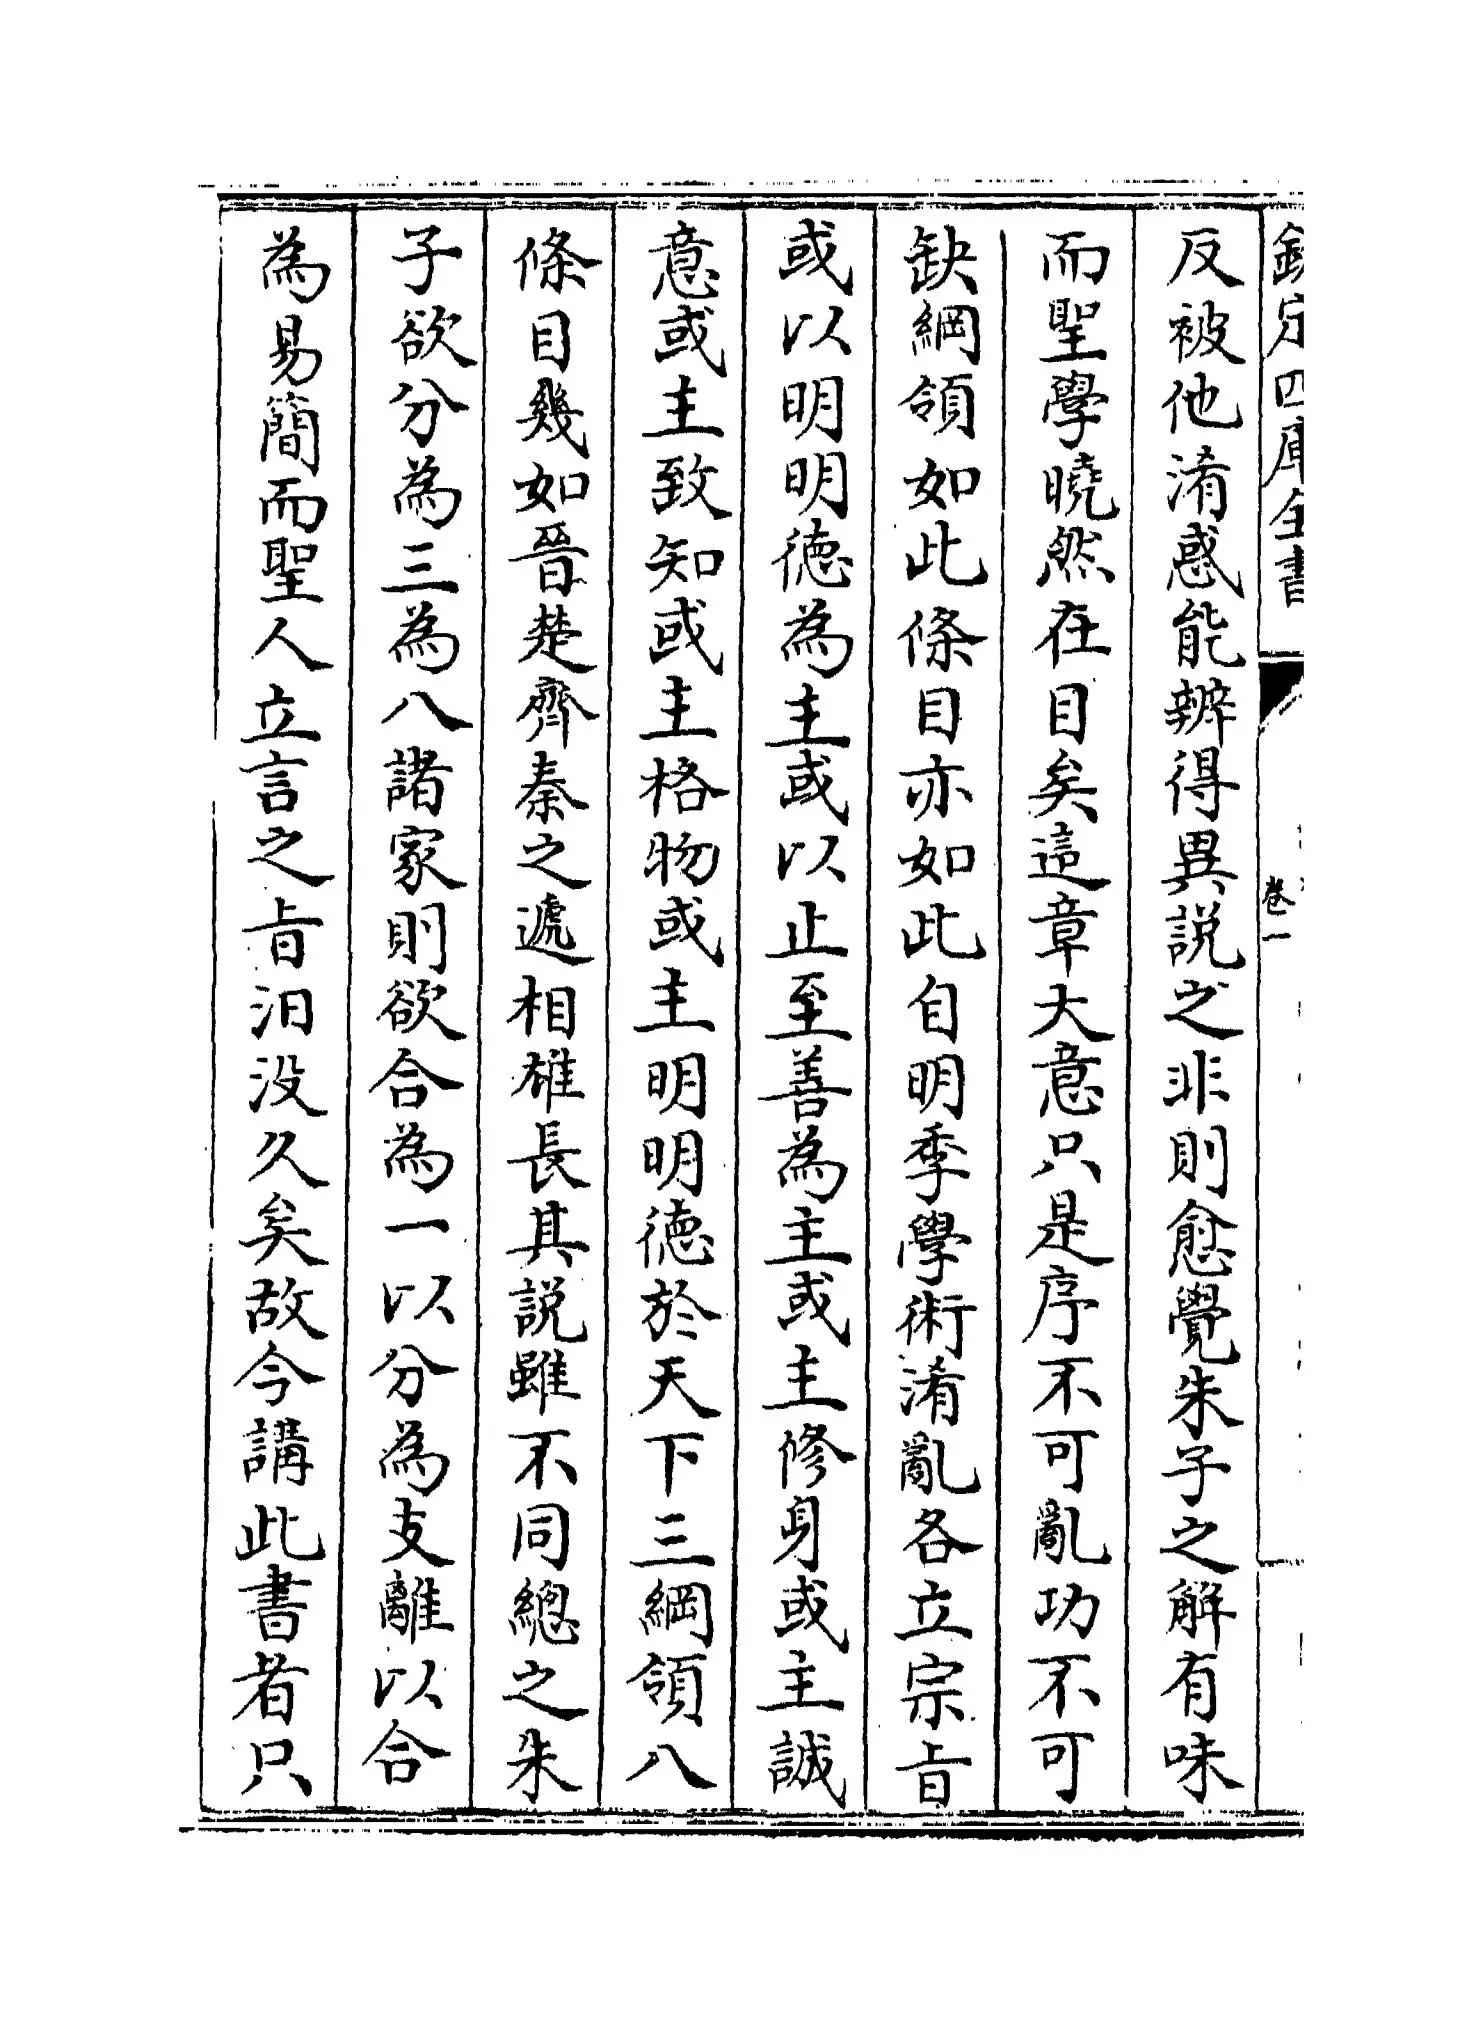 欽定四庫全書
卷一
反被他淆惑能辨得異説之非則愈覺朱子之解有味
而聖學曉然在目矣這章大意只是序不可亂功不可
缺綱領如此條目亦如此自明季學術淆亂各立宗旨
或以明明德為主或以止至善為主或主修身或主誠
意或主致知或主格物或主明明德於天下三綱領八
條目幾如晉楚齊秦之遞相雄長其説雖不同總之朱
子欲分為三為八諸家則欲合為一以分為支離以合
為易簡而聖人立言之旨汨没久矣故今講此書者只